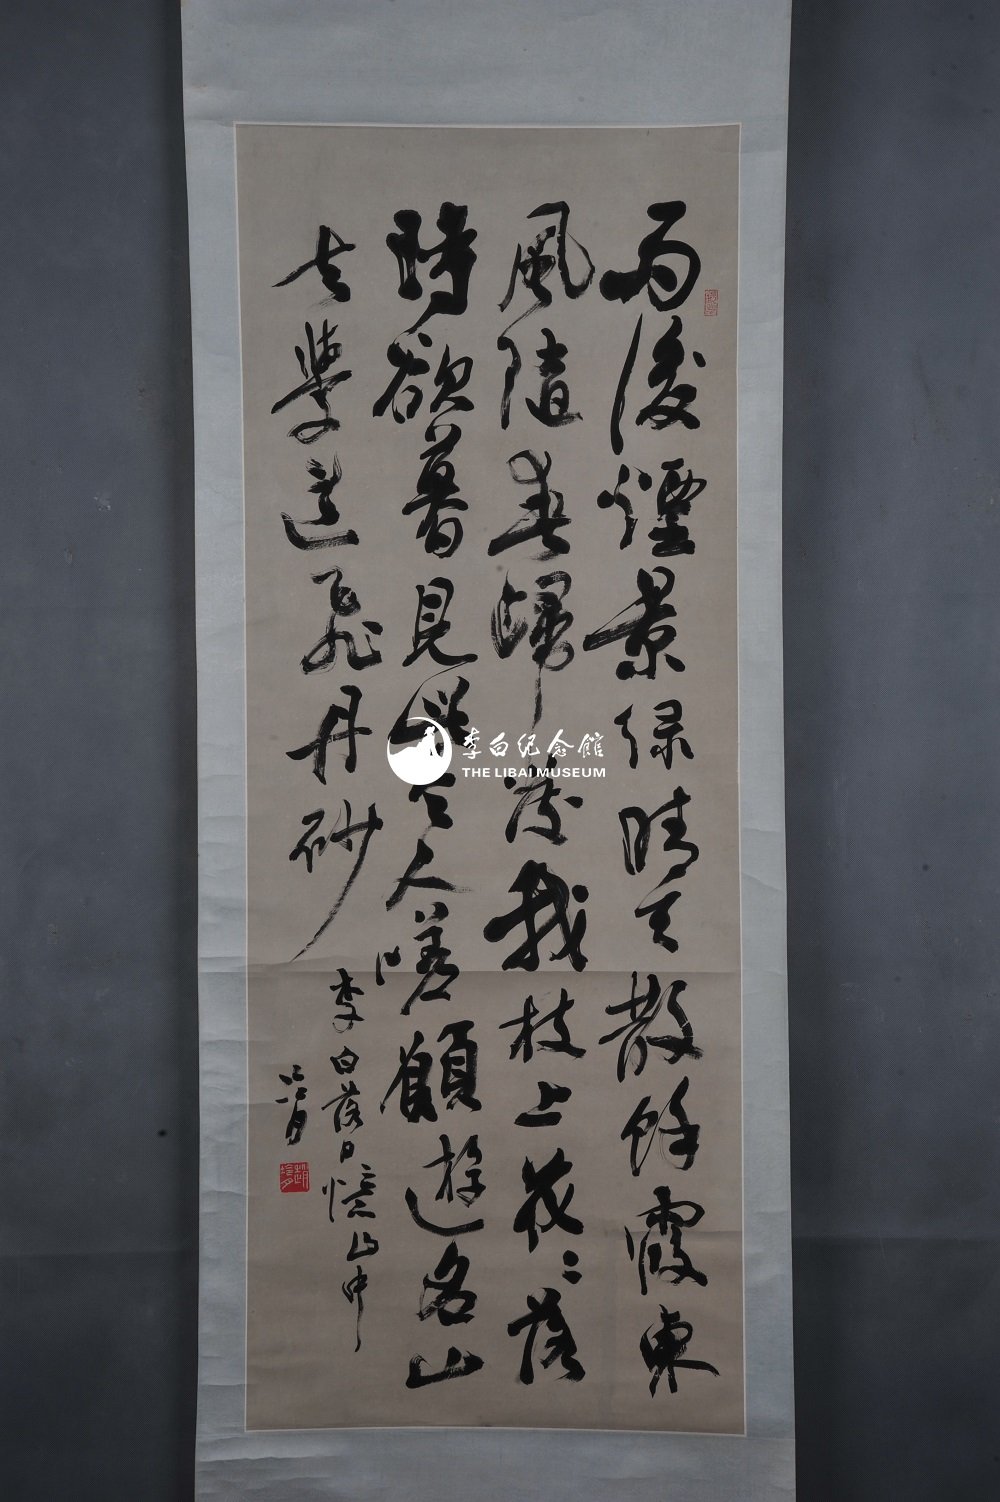 雨後煙景緑晴天散餘霞東
風隨春歸發我枝上花〻落
時欲暮見此令人嗟願遊名山
去學道飛丹砂
李白落日憶山中
李白纪念馆
THE LIBAI MUSEUM